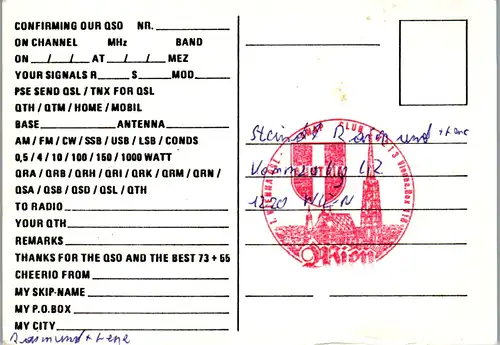 CONFIRMING OUR QSO NR.
ON CHANNEL MHz BAND
ON / / AT / / MEZ
YOUR SIGNALS R S MOD
PSE SEND QSL / TNX FOR QSL
QTH / QTM / HOME / MOBIL
BASE ANTENNA
AM / FM / CW / SSB / USB / LSB / CONDS
0,5 / 4 / 10 / 100 / 150 / 1000 WATT
QRA / QRB / QRH / QRI / QRK / QRM / QRN /
QSA / QSB / QSD / QSL / QTH
TO RADIO
YOUR QTH
REMARKS
THANKS FOR THE QSO AND THE BEST 73 + 55
CHEERIO FROM
MY SKIP-NAME
MY P.O.BOX
MY CITY
Rasmund + Lene
SWAP CLUB
1220 WIEN
Wien